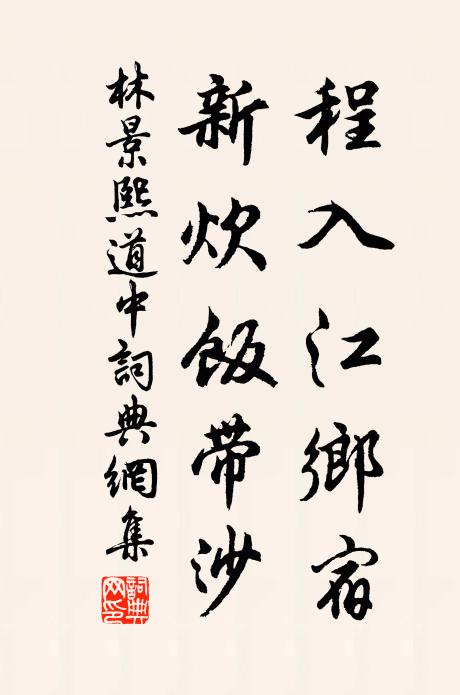 程入江鄉宿
新炊飯帶沙
林景熙道中詞典網集
詞典網印